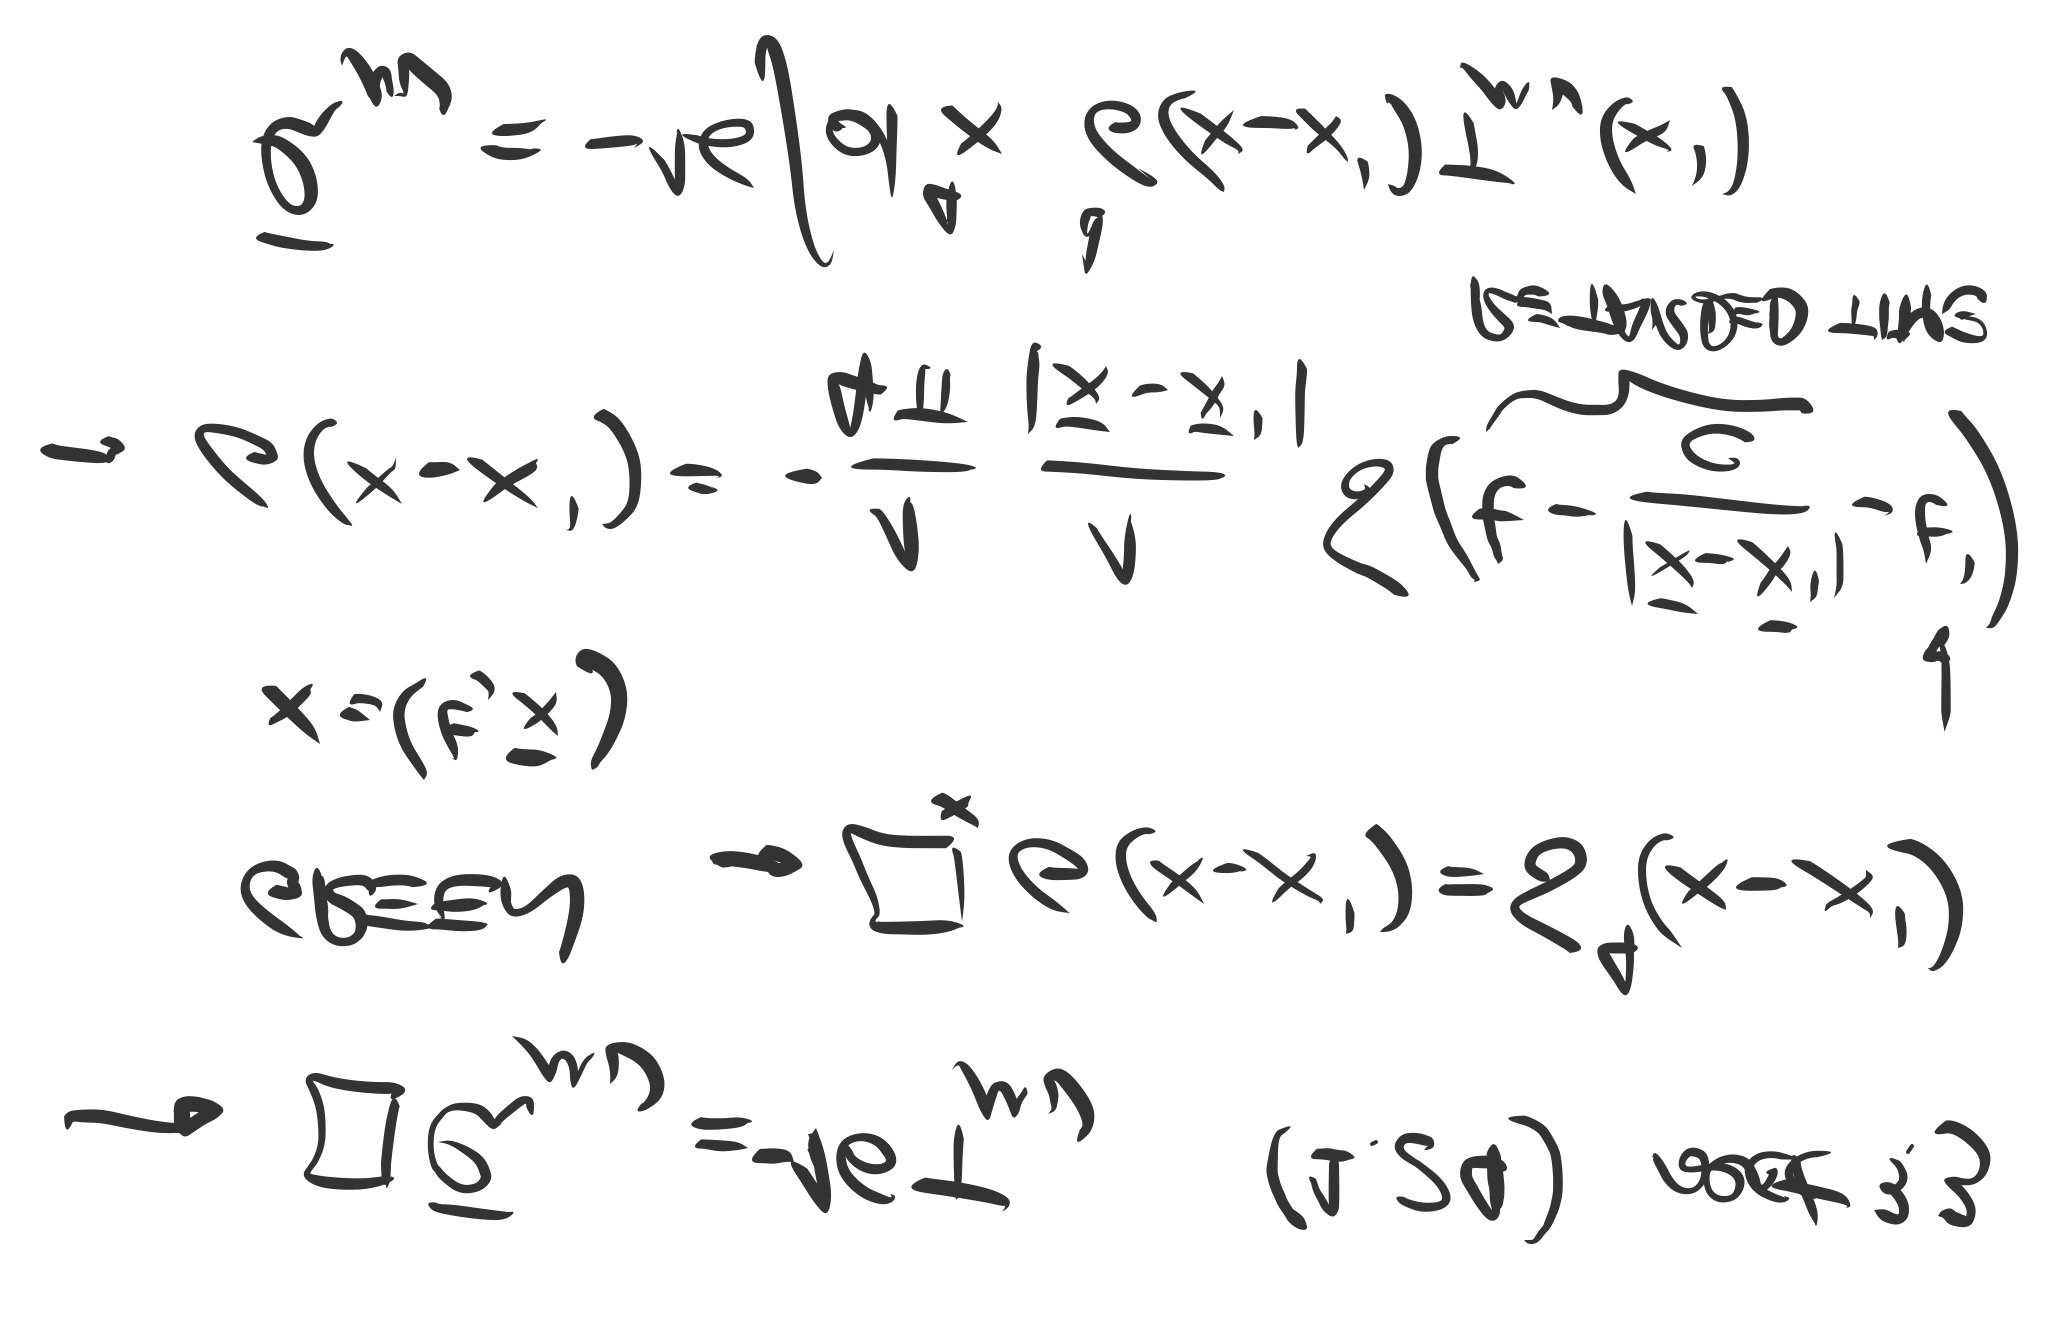 → □ h̄_μν = -16 T_μν (1.24) sect 3.3
GREEN → □_x G(x-x') = δ^4(x-x')
x = (t, x̄)
→ G(x-x') = - 1/4π 1/|x̄-x̄'| δ(t - |x̄-x̄'|/c - t')
RETARDED TIME
h̄_μν = -16 ∫ d^4x G(x-x') T_μν(x')